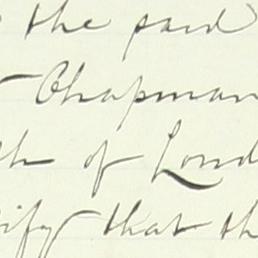 the said
Chapman
th of Lond
ify that th